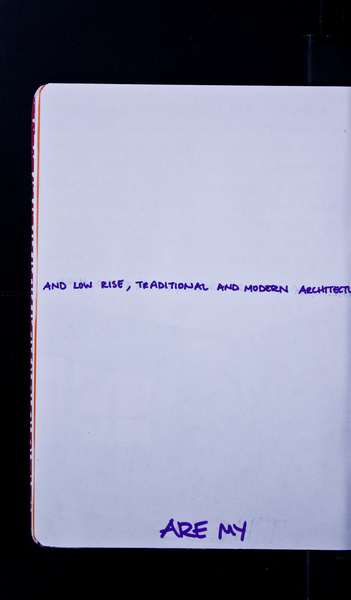 AND LOW RISE, TRADITIONAL AND MODERN
ARE MY